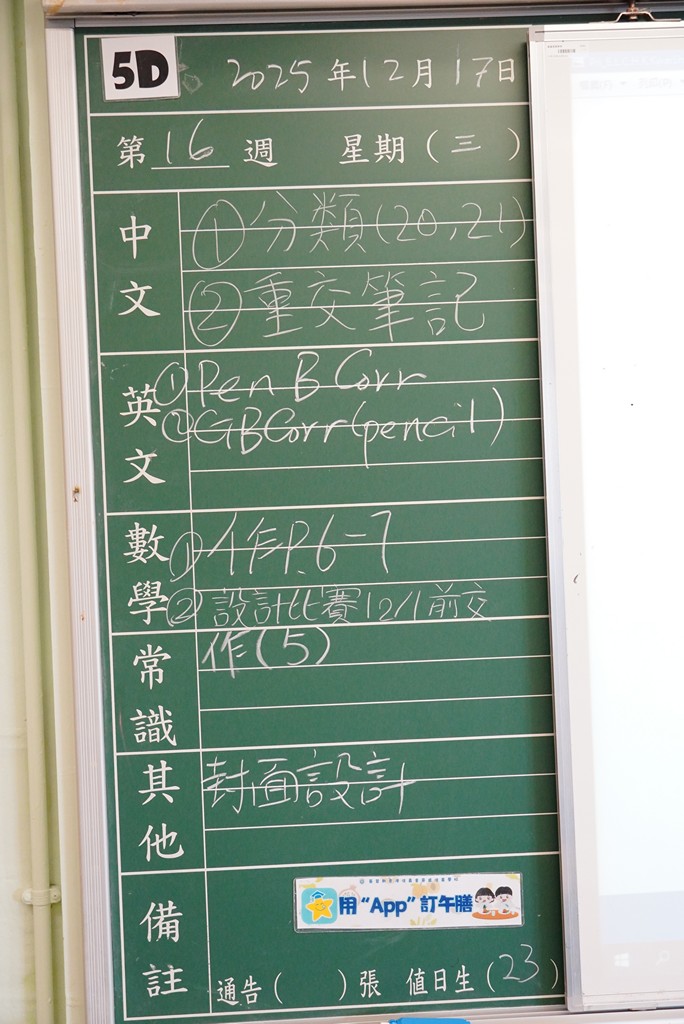 5D 2025年12月17日
第 16 週 星期(三)
中文
①分類(20,21)
②重交筆記
英文
①Pen B Corr
②GB Corr (pencil)
數學
①作P.6-7
②設計比賽12/1前交
常識
作(5)
其他
封面設計
備註
用“App”訂午膳
通告( )張 值日生(23)